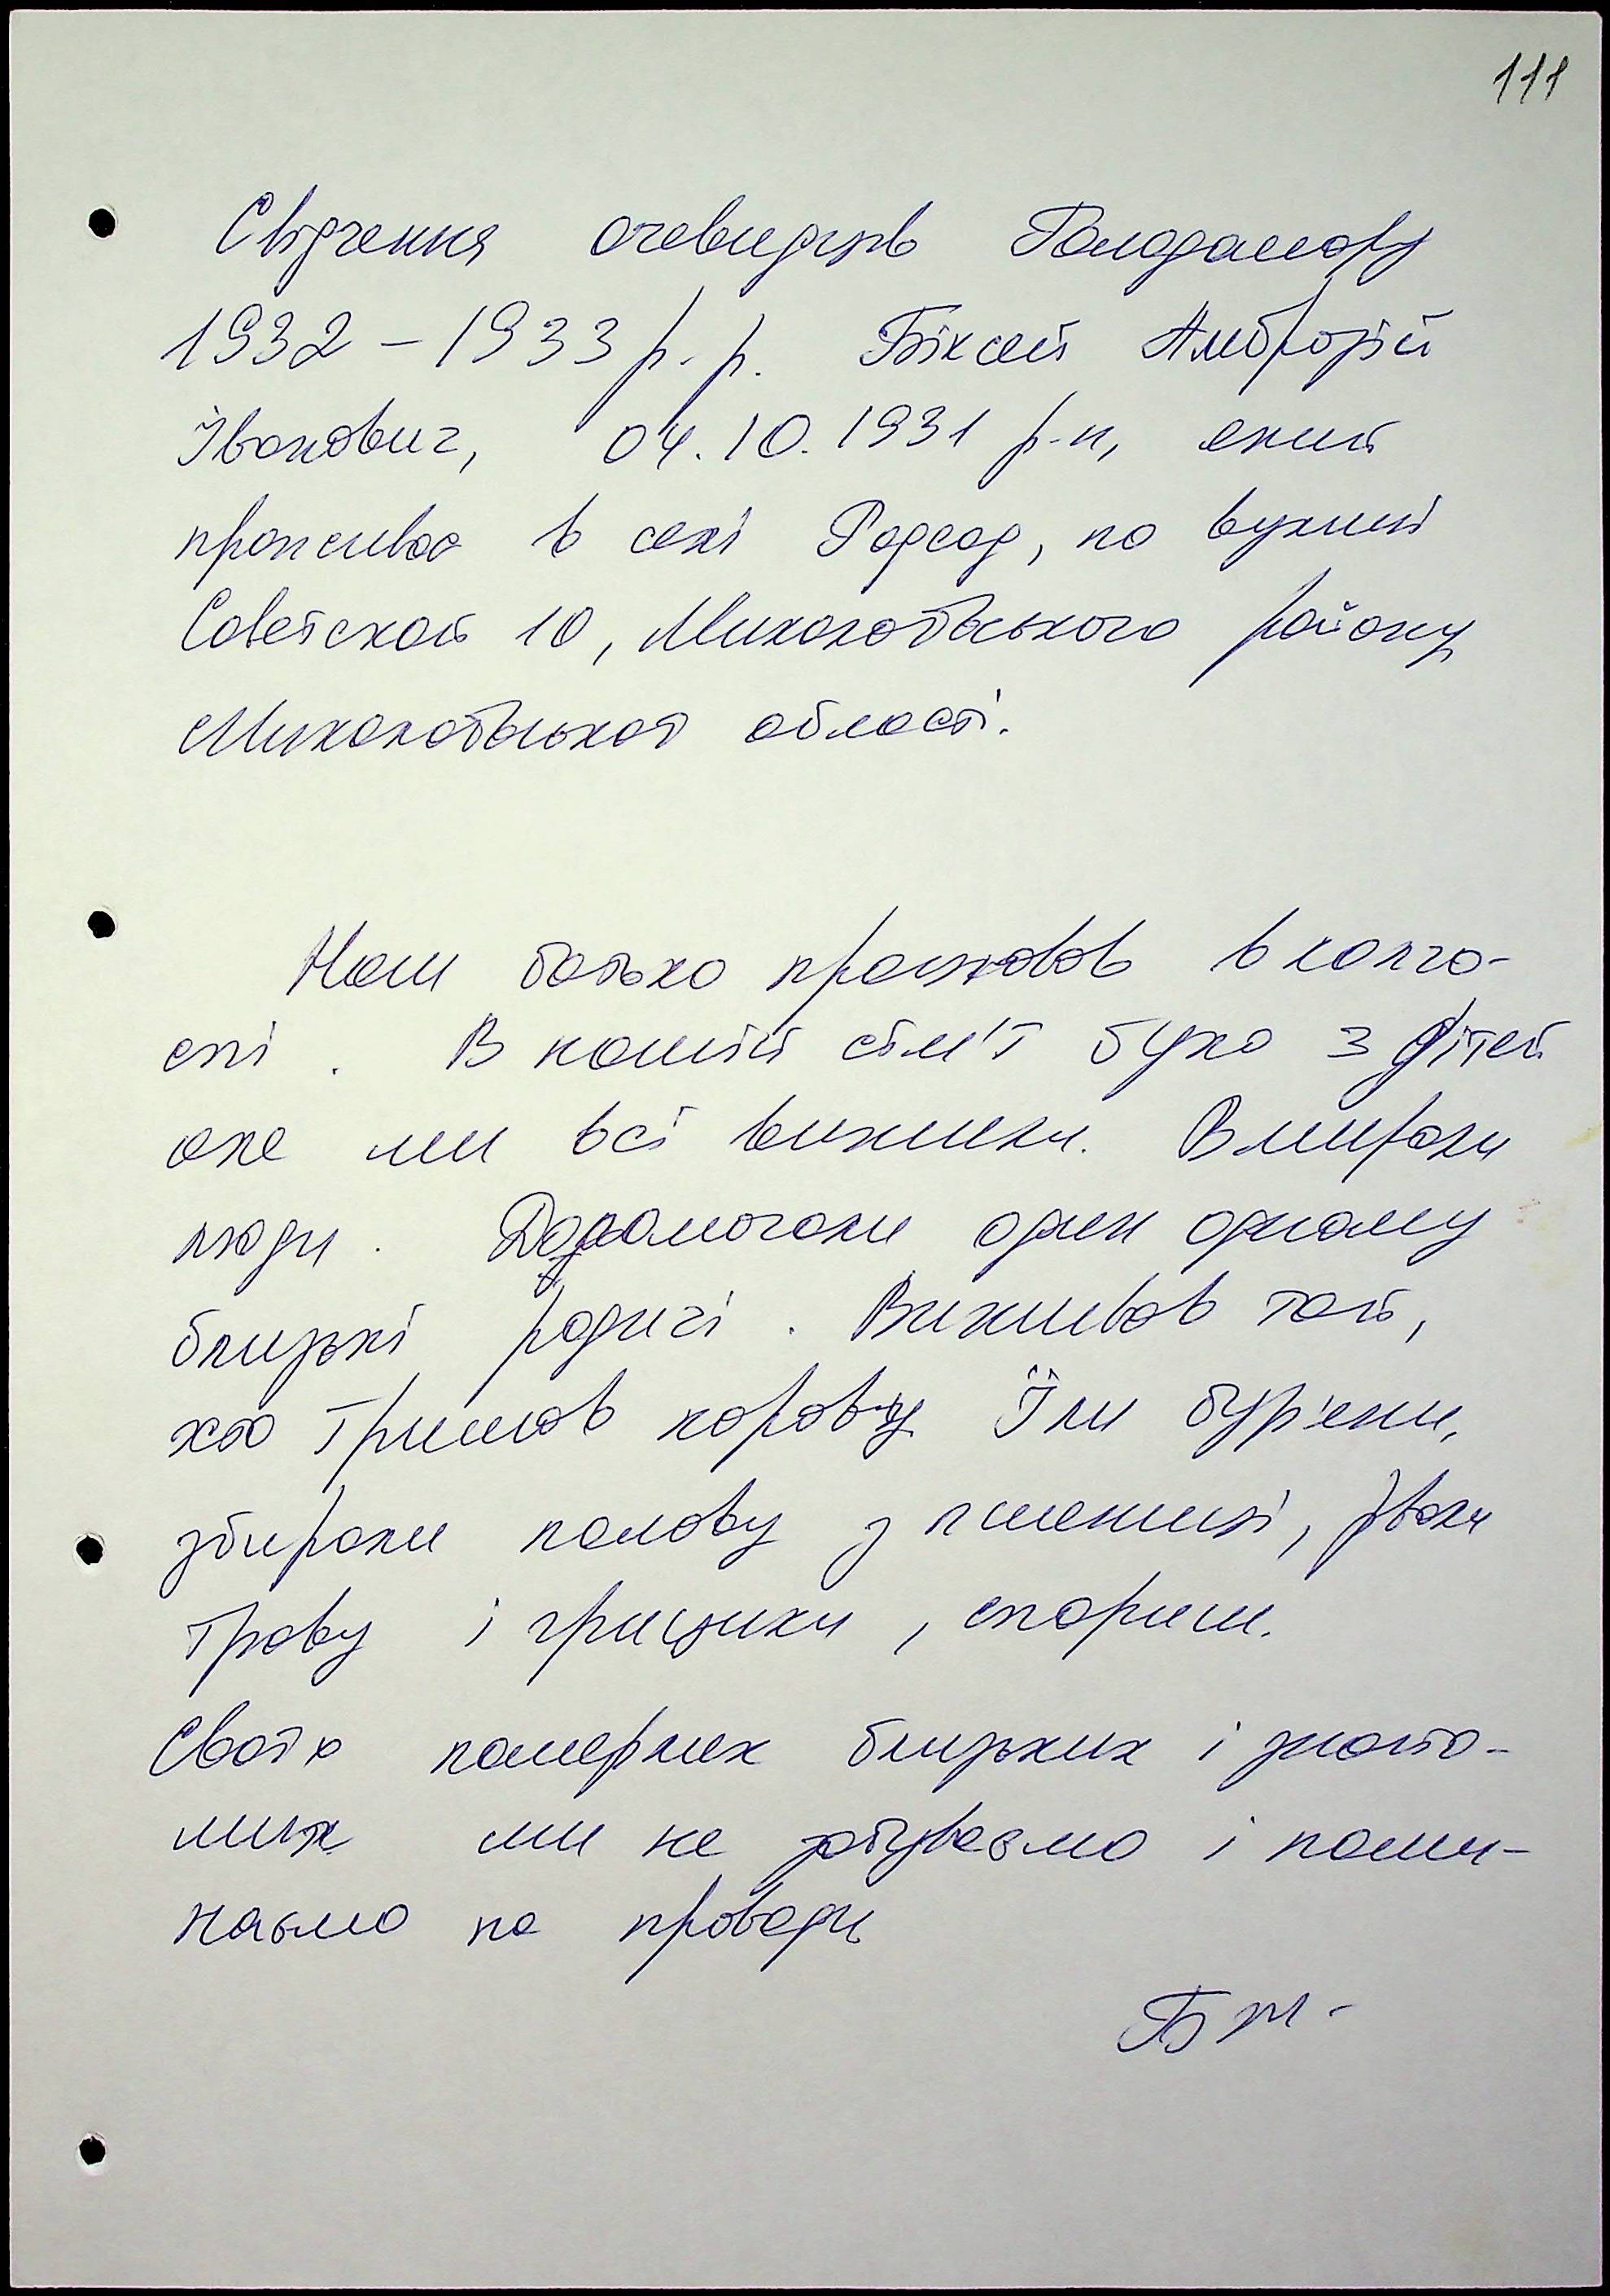 111
Свідчення очевидців Голодомору
1932 – 1933 р. р. Біксей Амброзій
Іванович, 04.10.1931 р.н, який
проживає в селі Радсад, по вулиці
Советской 10, Миколаївського району
Миколаївської області.
Наш батько працював в колго-
спі . В нашій сім'ї було 3 дітей
але ми всі вижили. Вмирали
люди . Допомогали один одному
близькі родичі . Виживав той,
хто тримав корову Їли бур'яни,
збирали полову з пшениці, рвали
траву і грицики , спориш.
Своїх померших близьких і знайо-
мих ми не забуваємо і поми-
наємо на проводи